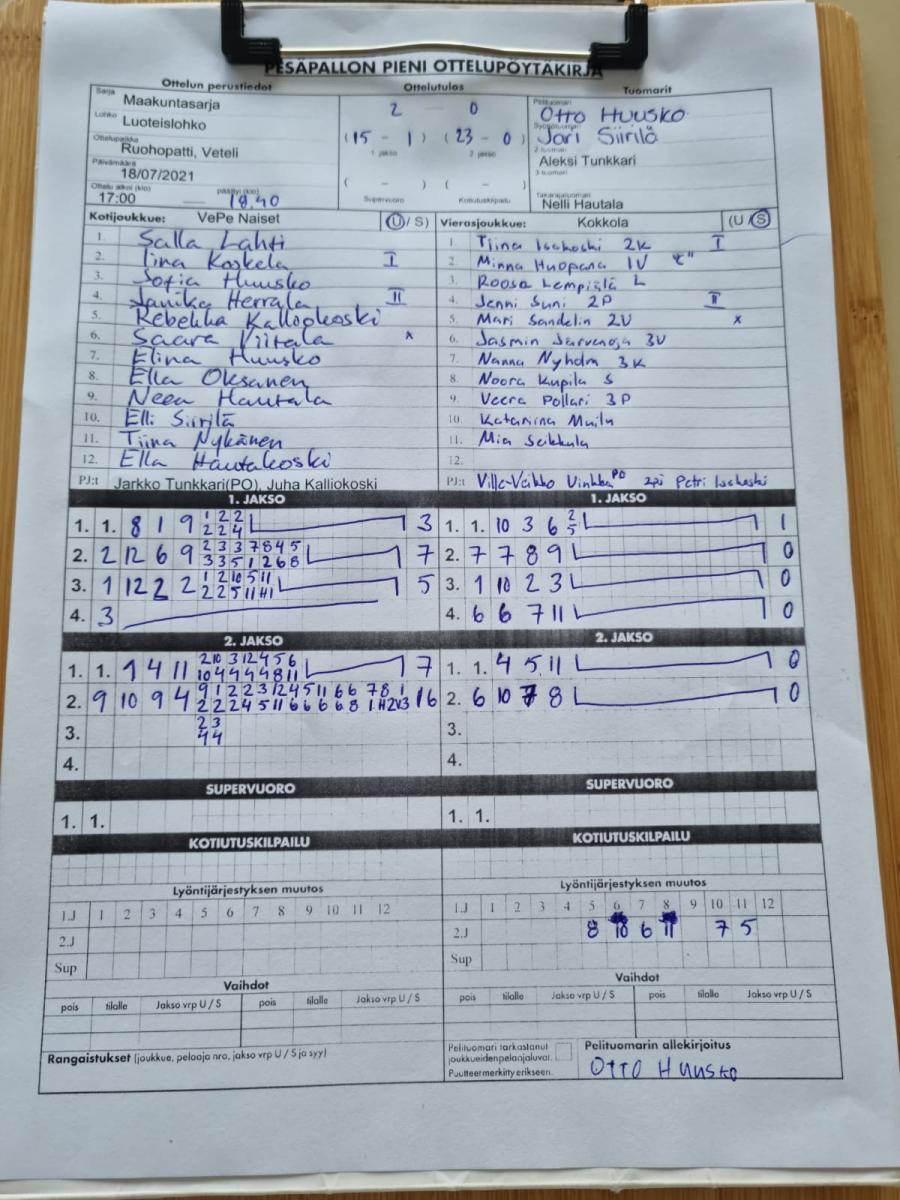 PESÄPALLON PIENI OTTELUPÖYTÄKIRJA
Ottelun perustiedot Ottelutulos Tuomarit
Sarja Maakuntasarja
Lohko Luoteislohko
Ottelupaikka Ruohopatti, Veteli
Päivämäärä 18/07/2021
Ottelu alkoi (klo) 17:00 päättyi (klo) 18.40
2 - 0
(15 - 1) (23 - 0)
1 jakso 2 jakso
( - ) ( - )
Supervuoro Kotiutuskilpailu
Pelituomari Otto Huusko
Syöttötuomari Jari Siirilä
2-tuomari Aleksi Tunkkari
3-tuomari
Takarajatuomari Nelli Hautala
Kotijoukkue: VePe Naiset (U / S) Vierasjoukkue: Kokkola (U / S)
1. Salla Lahti
2. Iina Koskela I
3. Sofia Huusko
4. Janika Herrala II
5. Rebekka Kalliokoski
6. Saara Viitala x
7. Elina Huusko
8. Ella Oksanen
9. Neea Hautala
10. Elli Siirilä
11. Tiina Nykänen
12. Ella Hautakoski
PJ:t Jarkko Tunkkari(PO), Juha Kalliokoski
1. Tiina Isokoski 2K I
2. Minna Huopana 1V "C"
3. Roosa Lempiälä L
4. Jenni Suni 2P II
5. Mari Sandelin 2V x
6. Jasmin Järvenoja 3V
7. Nanna Nyholm 3K
8. Noora Kupila S
9. Veera Pollari 3P
10. Katariina
11. Mia Seikkula
12.
PJ:t Ville-Veikko PO 2pj Petri Isokoski
1. JAKSO 1. JAKSO
1. 1. 8 1 9 1 2 2 3
2 2 4
2. 2 12 6 9 2 3 3 7 8 4 5 7
3 3 5 1 2 6 8
3. 1 12 2 2 1 2 10 5 11 5
2 2 5 11 11
4. 3
1. 1. 10 3 6 2 1
5
2. 7 7 8 9 0
3. 1 10 2 3 0
4. 6 6 7 11 0
2. JAKSO 2. JAKSO
1. 1. 1 4 11 2 10 3 12 4 5 6 7
10 4 4 4 4 8 11
2. 9 10 9 4 9 1 2 2 3 12 4 5 11 6 6 7 8 1 16
2 2 2 4 5 11 6 6 6 6 8 1
3. 2 3
4 4
4.
1. 1. 4 5 11 0
2. 6 10 7 8 0
3.
4.
SUPERVUORO SUPERVUORO
1. 1. 1. 1.
KOTIUTUSKILPAILU KOTIUTUSKILPAILU
Lyöntijärjestyksen muutos Lyöntijärjestyksen muutos
1.J 1 2 3 4 5 6 7 8 9 10 11 12
2.J
Sup
1.J 1 2 3 4 5 6 7 8 9 10 11 12
2.J 8 10 6 11 7 5
Sup
Vaihdot Vaihdot
pois tilalle Jakso vrp U / S pois tilalle Jakso vrp U / S
pois tilalle Jakso vrp U / S pois tilalle Jakso vrp U / S
Rangaistukset (joukkue, pelaaja nro, jakso vrp U / S ja syy)
Pelituomari tarkastanut
joukkueiden pelaajaluvat.
Puutteet merkitty erikseen.
Pelituomarin allekirjoitus
Otto Huusko